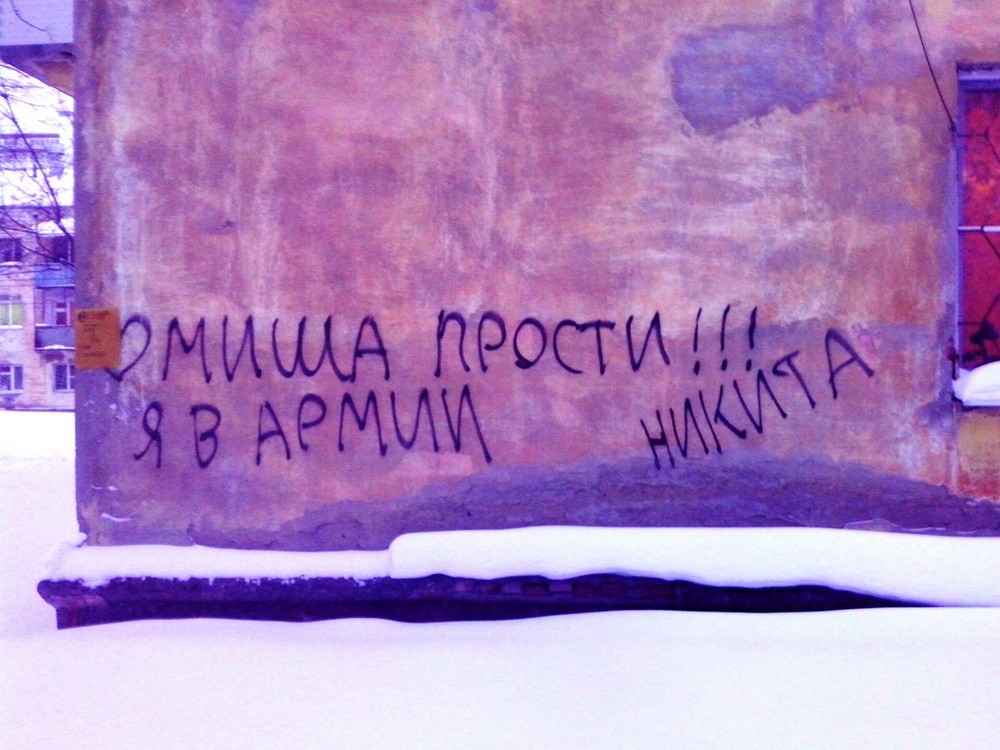 ОМИША ПРОСТИ!!!
Я В АРМИИ
НИКИТА